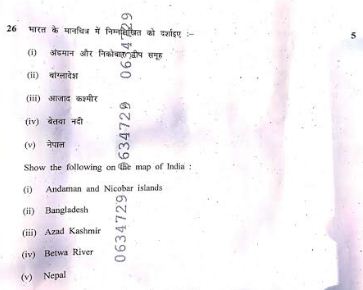 26 भारत के मानचित्र में निम्नलिखित को दर्शाइए :– 5
(i) अंडमान और निकोबार द्वीप समूह
(ii) बांग्लादेश
(iii) आजाद कश्मीर
(iv) बेतवा नदी
(v) नेपाल
Show the following on the map of India :
(i) Andaman and Nicobar islands
(ii) Bangladesh
(iii) Azad Kashmir
(iv) Betwa River
(v) Nepal
0634729 0634729 0634729